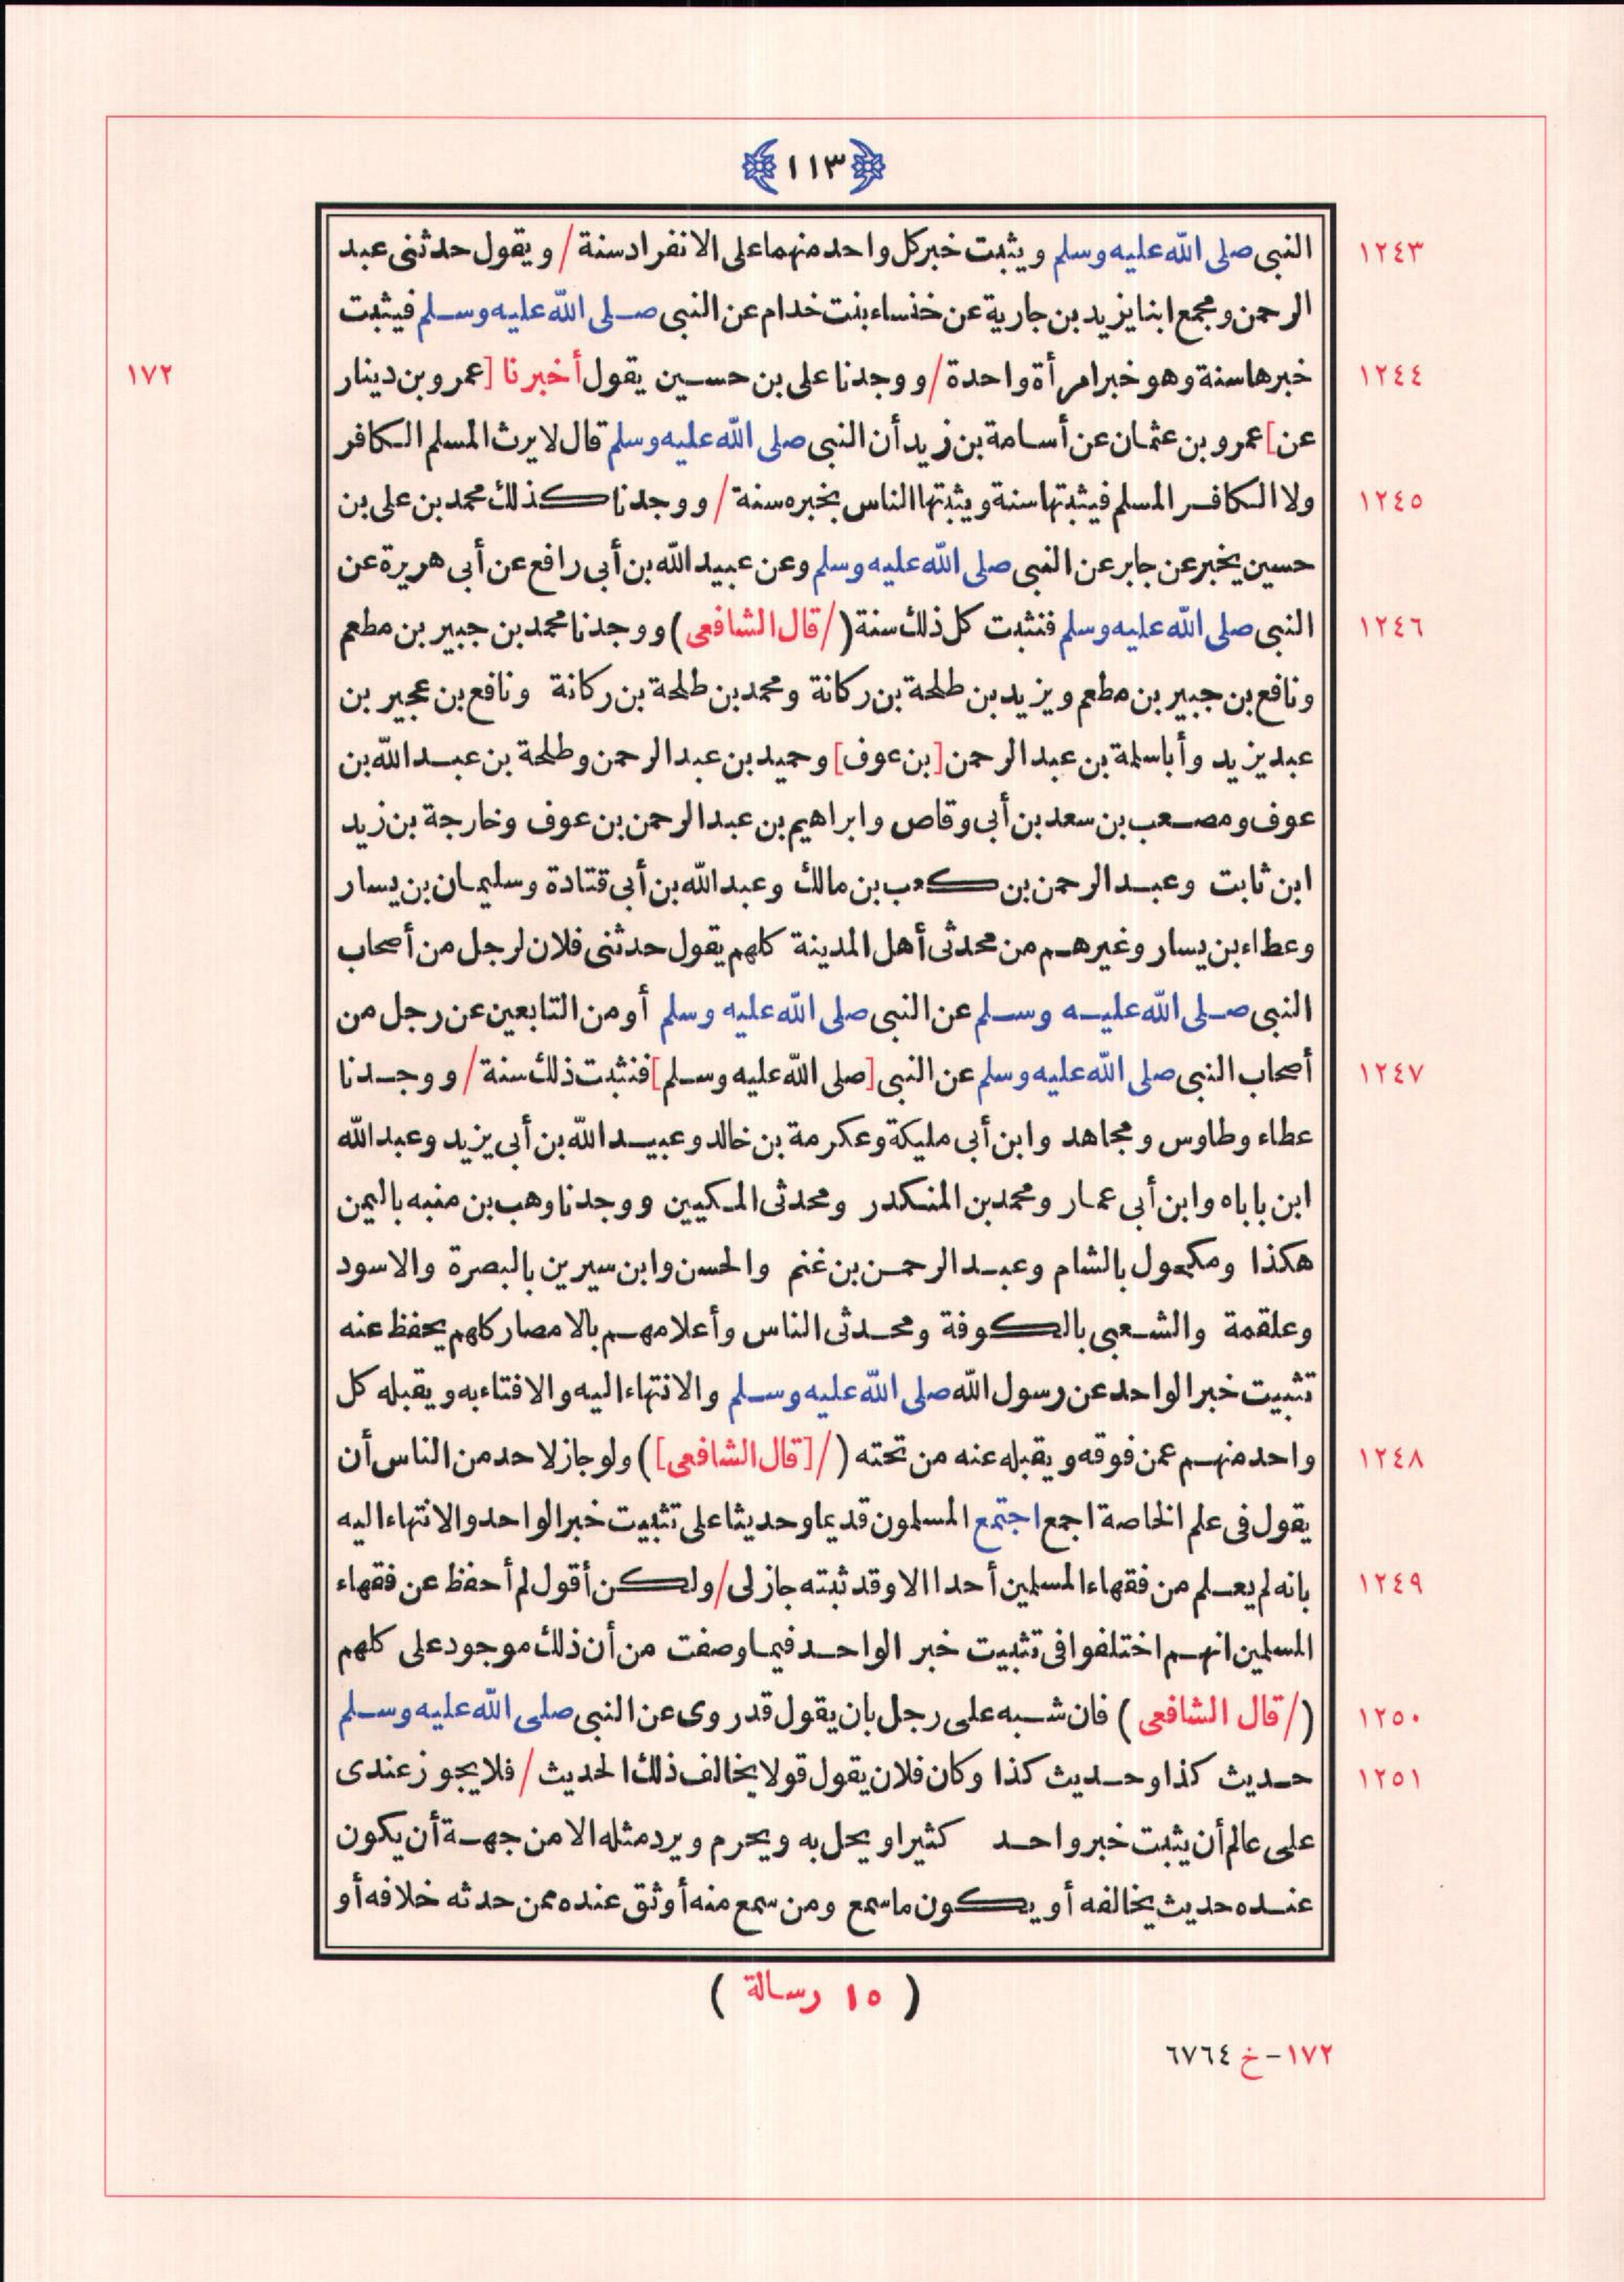 ١١٣
١٢٤٣ النبي صلى الله عليه وسلم ويثبت خبركل واحد منهما على الانفراد سنة / ويقول حدثنى عبد
الرحمن ومجمع ابنا يزيد بن جارية عن خنساء بنت خدام عن النبى صلى الله عليه وسلم فيثبت
١٢٤٤ خبرها سنة وهو خبر امرأة واحدة / ووجدنا على بن حسين يقول أخبرنا [عمرو بن دينار ١٧٢
عن] عمرو بن عثمان عن أسامة بن زيد أن النبى صلى الله عليه وسلم قال لا يرث المسلم الكافر
١٢٤٥ ولا الكافر المسلم فيثبتها سنة ويثبتها الناس بخبره سنة / ووجدنا كذلك محمد بن على بن
حسين يخبر عن جابر عن النبى صلى الله عليه وسلم وعن عبيد الله بن أبى رافع عن أبى هريرة عن
١٢٤٦ النبى صلى الله عليه وسلم فنثبت كل ذلك سنة (/ قال الشافعى) ووجدنا محمد بن جبير بن مطعم
ونافع بن جبير بن مطعم ويزيد بن طلحة بن ركانة ومحمد بن طلحة بن ركانة ونافع بن عجير بن
عبد يزيد وأبا سلمة بن عبد الرحمن [بن عوف] وحميد بن عبد الرحمن وطلحة بن عبد الله بن
عوف ومصعب بن سعد بن أبى وقاص وابراهيم بن عبد الرحمن بن عوف وخارجة بن زيد
ابن ثابت وعبد الرحمن بن كعب بن مالك وعبد الله بن أبى قتادة وسليمان بن يسار
وعطاء بن يسار وغيرهم من محدثى أهل المدينة كلهم يقول حدثنى فلان لرجل من أصحاب
النبى صلى الله عليه وسلم عن النبى صلى الله عليه وسلم أو من التابعين عن رجل من
١٢٤٧ أصحاب النبى صلى الله عليه وسلم عن النبى [صلى الله عليه وسلم] فنثبت ذلك سنة / ووجدنا
عطاء وطاوس ومجاهد وابن أبى مليكة وعكرمة بن خالد وعبيد الله بن أبى يزيد وعبد الله
ابن باباه وابن أبى عمار ومحمد بن المنكدر ومحدثى المكيين ووجدنا وهب بن منبه باليمن
هكذا ومكحول بالشام وعبد الرحمن بن غنم والحسن وابن سيرين بالبصرة والاسود
وعلقمة والشعبى بالكوفة ومحدثى الناس وأعلامهم بالامصار كلهم يحفظ عنه
تثبيت خبر الواحد عن رسول الله صلى الله عليه وسلم والانتهاء اليه والافتاء به ويقبله كل
١٢٤٨ واحد منهم عمن فوقه ويقبله عنه من تحته (/ [قال الشافعى]) ولو جاز لاحد من الناس أن
يقول فى علم الخاصة اجمع اجتمع المسلمون قديما وحديثا على تثبيت خبر الواحد والانتهاء اليه
١٢٤٩ بانه لم يعلم من فقهاء المسلمين أحدا الا وقد ثبته جاز لى / ولكن أقول لم أحفظ عن فقهاء
المسلمين انهم اختلفوا فى تثبيت خبر الواحد فيما وصفت من أن ذلك موجود على كلهم
١٢٥٠ (/ قال الشافعى) فان شبه على رجل بان يقول قد روى عن النبى صلى الله عليه وسلم
١٢٥١ حديث كذا وحديث كذا وكان فلان يقول قولا يخالف ذلك الحديث / فلا يجوز عندى
على عالم أن يثبت خبر واحد كثيرا ويحل به ويحرم ويرد مثله الا من جهة أن يكون
عنده حديث يخالفه أو يكون ما سمع ومن سمع منه أوثق عنده ممن حدثه خلافه أو
( ١٥ رسالة )
١٧٢ - خ ٦٧٦٤